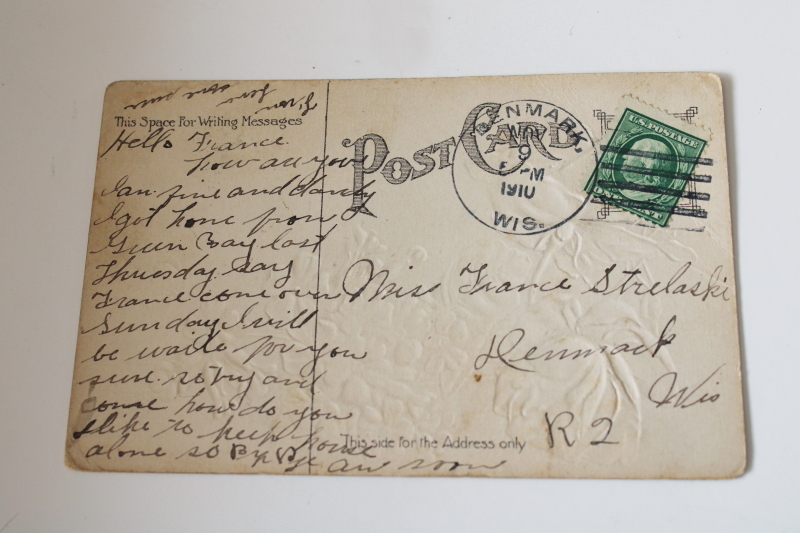 This Space For Writing Messages
Hello France.
how are you
I an fine and dandy
I got home from
Green Bay last
Thuesday. Say
France come over
Sunday I will
be waite for you
sure. so try and
come how do you
like to keep house
alone so By By
an soon
POST CARD
DENMARK,
NOV
9
M
1910
WIS.
U.S. POSTAGE
Miss France Strelaski
Denmark
Wis
R 2
This side for the Address only